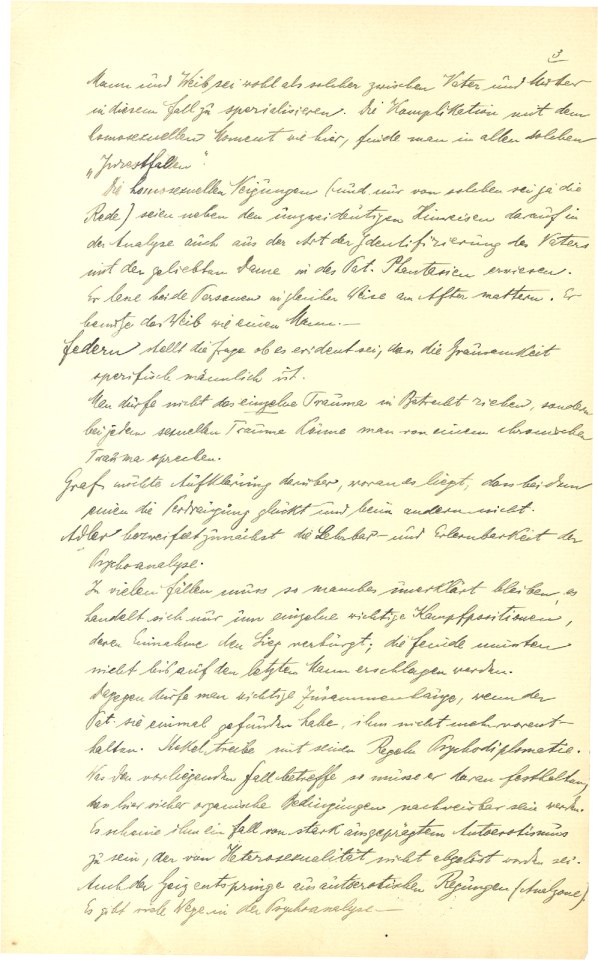 3
Mann und Weib, sei wohl als solcher zwischen Vater und Mutter
in diesem Fall zu spezialisieren. Die Komplikation mit dem
homosexuellen Moment wie hier, finde man in allen solchen
„Inzestfällen“.
Die homosexuellen Neigungen (und nur von solchen sei ja die
Rede) seien neben den unzweideutigen Hinweisen darauf in
der Analyse auch aus der Art der Identifizierung des Vaters
mit der geliebten Dame in des Pat. Phantasien erwiesen.
Er lasse beide Personen in gleicher Weise am After martern. Er
benütze das Weib wie einen Mann.—
Federn stellt die Frage ob es evident sei, dass die Grausamkeit
spezifisch männlich ist.
Man dürfe nicht das einzelne Trauma in Betracht ziehen, sondern
bei jedem sexuellen Trauma könne man von einem chronischen
Trauma sprechen.
Graf möchte Aufklärung darüber, woran es liegt, dass bei dem
einen die Verdrängung glückt und beim andern nicht.
Adler bezweifelt zunächst die Lehrbar- und Erlernbarkeit der
Psychoanalyse.
In vielen Fällen muss so manches unerklärt bleiben, es
handelt sich nur um einzelne wichtige Kampfpositionen,
deren Einnahme den Sieg verbürgt; die Feinde müssten
nicht bis auf den letzten Mann erschlagen werden.
Dagegen dürfe man wichtige Zusammenhänge, wenn der
Pat. sie einmal gefunden habe, ihm nicht mehr vorent-
halten. Stekel treibe mit seinen Regeln Psychodiplomatie.
Was den vorliegenden Fall betreffe so müsse er daran festhalten,
dass hier sicher organische Bedingungen nachweisbar sein werden.
Es scheine ihm ein Fall von stark ausgeprägtem Autoerotismus
zu sein, der von Heterosexualität nicht abgelöst worden sei.
Auch der Geiz entspringe aus autoerotischen Regungen (Analzone).
Es gibt viele Wege in der Psychoanalyse.—